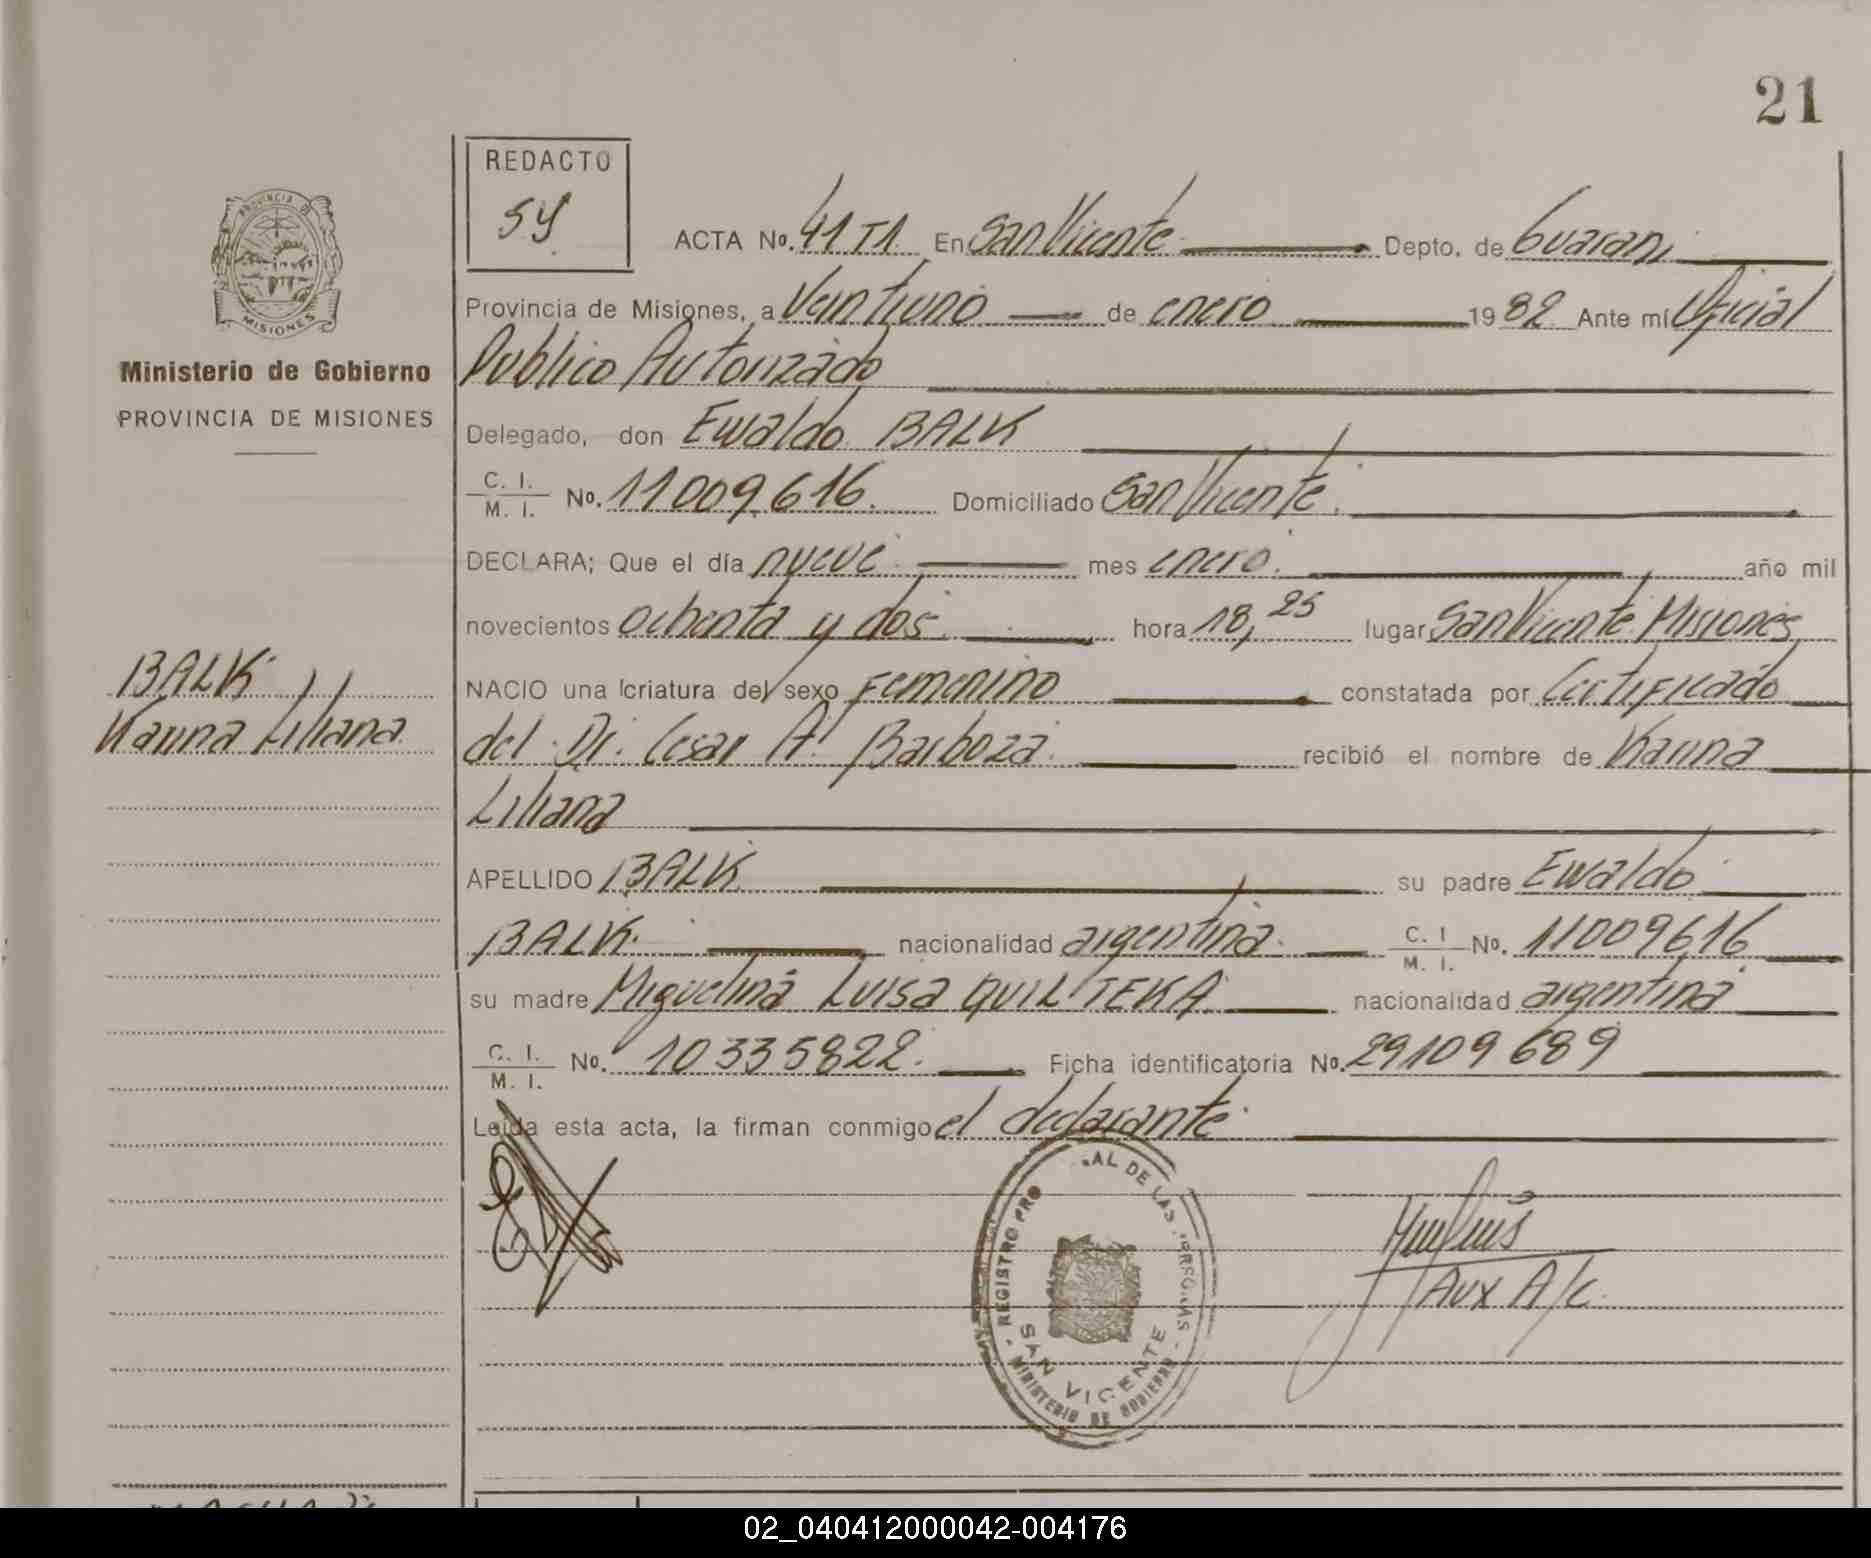 21
REDACTO
SY
PROVINCIA DE
MISIONES
Ministerio de Gobierno
PROVINCIA DE MISIONES
ACTA No. 41 T1 En San Vicente Depto. de Guarani
Provincia de Misiones, a Veintiuno de enero 1982 Ante mí Oficial
Publico Autorizado
Delegado, don Ewaldo BALK
C. I. / M. I. No. 11009.616. Domiciliado San Vicente.
DECLARA; Que el día nueve mes enero. año mil
novecientos ochenta y dos hora 18,25 lugar San Vicente Misiones
NACIO una criatura del sexo Femenino constatada por Certificado
del Dr. Cesar A. Barboza. recibió el nombre de Karina
Liliana
APELLIDO BALK su padre Ewaldo
BALK. nacionalidad argentina. C. I / M. I. No. 11009616
su madre Miguelina Luisa QUILTEKA nacionalidad argentina
C. I. / M. I. No. 10335822. Ficha identificatoria No. 29109689
Leída esta acta, la firman conmigo el declarante
BALK
Karina Liliana
REGISTRO PRO AL DE LAS PERSONAS
SAN VICENTE
MINISTERIO DE GOBIERNO
Aux A/c.
02_040412000042-004176